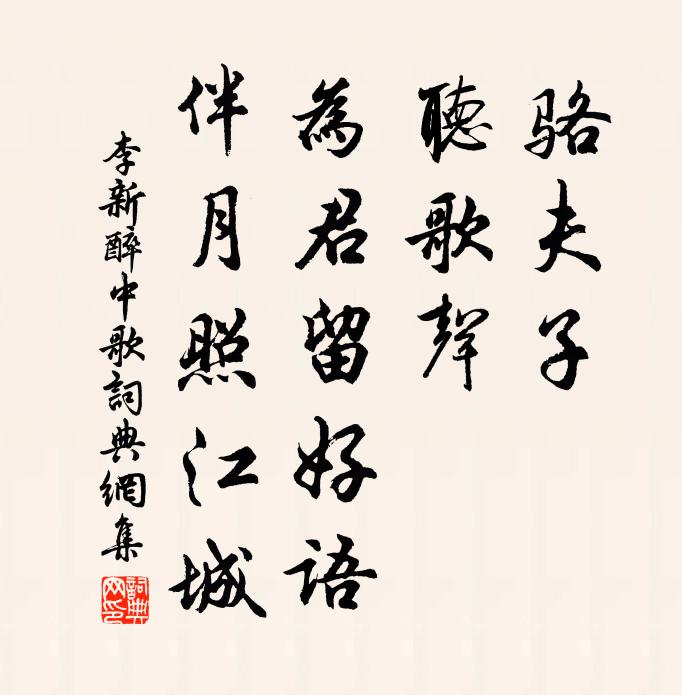 駱夫子
聽歌聲
為君留好語
伴月照江城
李新醉中歌詞典網集
詞典網印